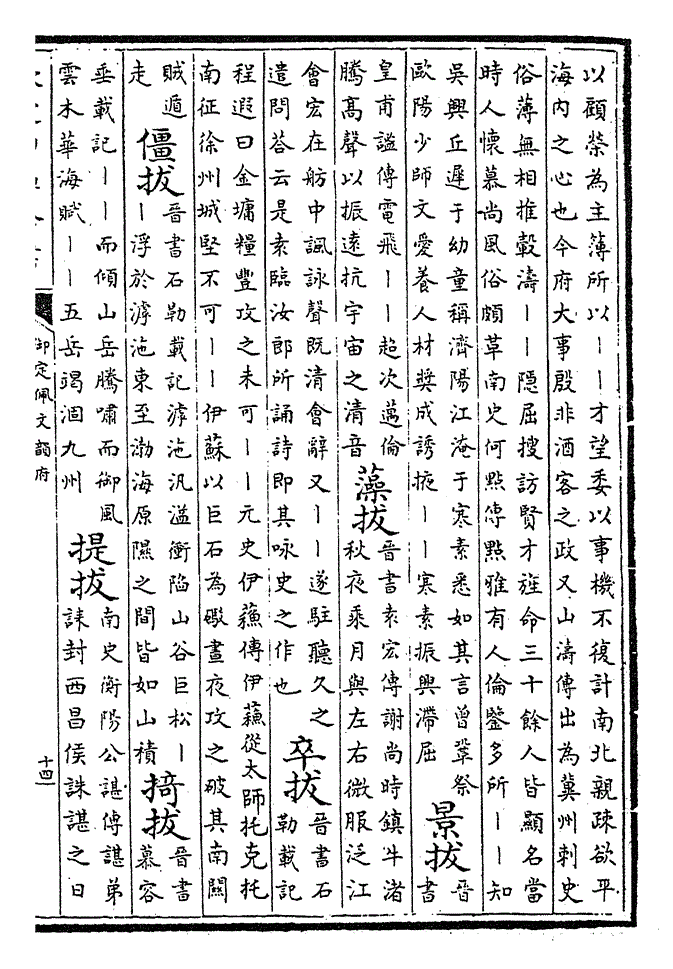 以顧榮為主簿所以丨丨才望委以事機不復計南北親疎欲平
海內之心也今府大事殷非酒客之政又山濤傳出為冀州刺史
俗薄無相推轂濤丨丨隱屈搜訪賢才旌命三十餘人皆顯名當
時人懷慕尚風俗頗革南史何點傳點雅有人倫鑒多所丨丨知
吳興丘遲于幼童稱濟陽江淹于寒素悉如其言曾鞏祭
歐陽少師文愛養人材奬成誘掖丨丨寒素振興滯屈
景拔
晉
書
皇甫謐傳電飛丨丨超次邁倫
騰高聲以振遠抗宇宙之清音
藻拔
晉書袁宏傳謝尚時鎮牛渚
秋夜乘月與左右微服泛江
會宏在舫中諷詠聲既清會辭又丨丨遂駐聽久之
遣問荅云是袁臨汝郎所誦詩即其咏史之作也
卒拔
晉書石
勒載記
程遐曰金墉糧豐攻之未可丨丨元史伊蘓傳伊蘓從太師托克托
南征徐州城堅不可丨丨伊蘇以巨石為礮晝夜攻之破其南關
賊遁
走
僵拔
晉書石勒載記滹沱汎溢衝陷山谷巨松丨
丨浮於滹沱東至渤海原隰之間皆如山積
掎拔
晉書
慕容
垂載記丨丨而傾山岳騰嘯而御風
雲木華海賦丨丨五岳竭涸九州
提拔
南史衡陽公諶傳諶弟
誄封西昌侯誅諶之日
御定佩文韻府
十四